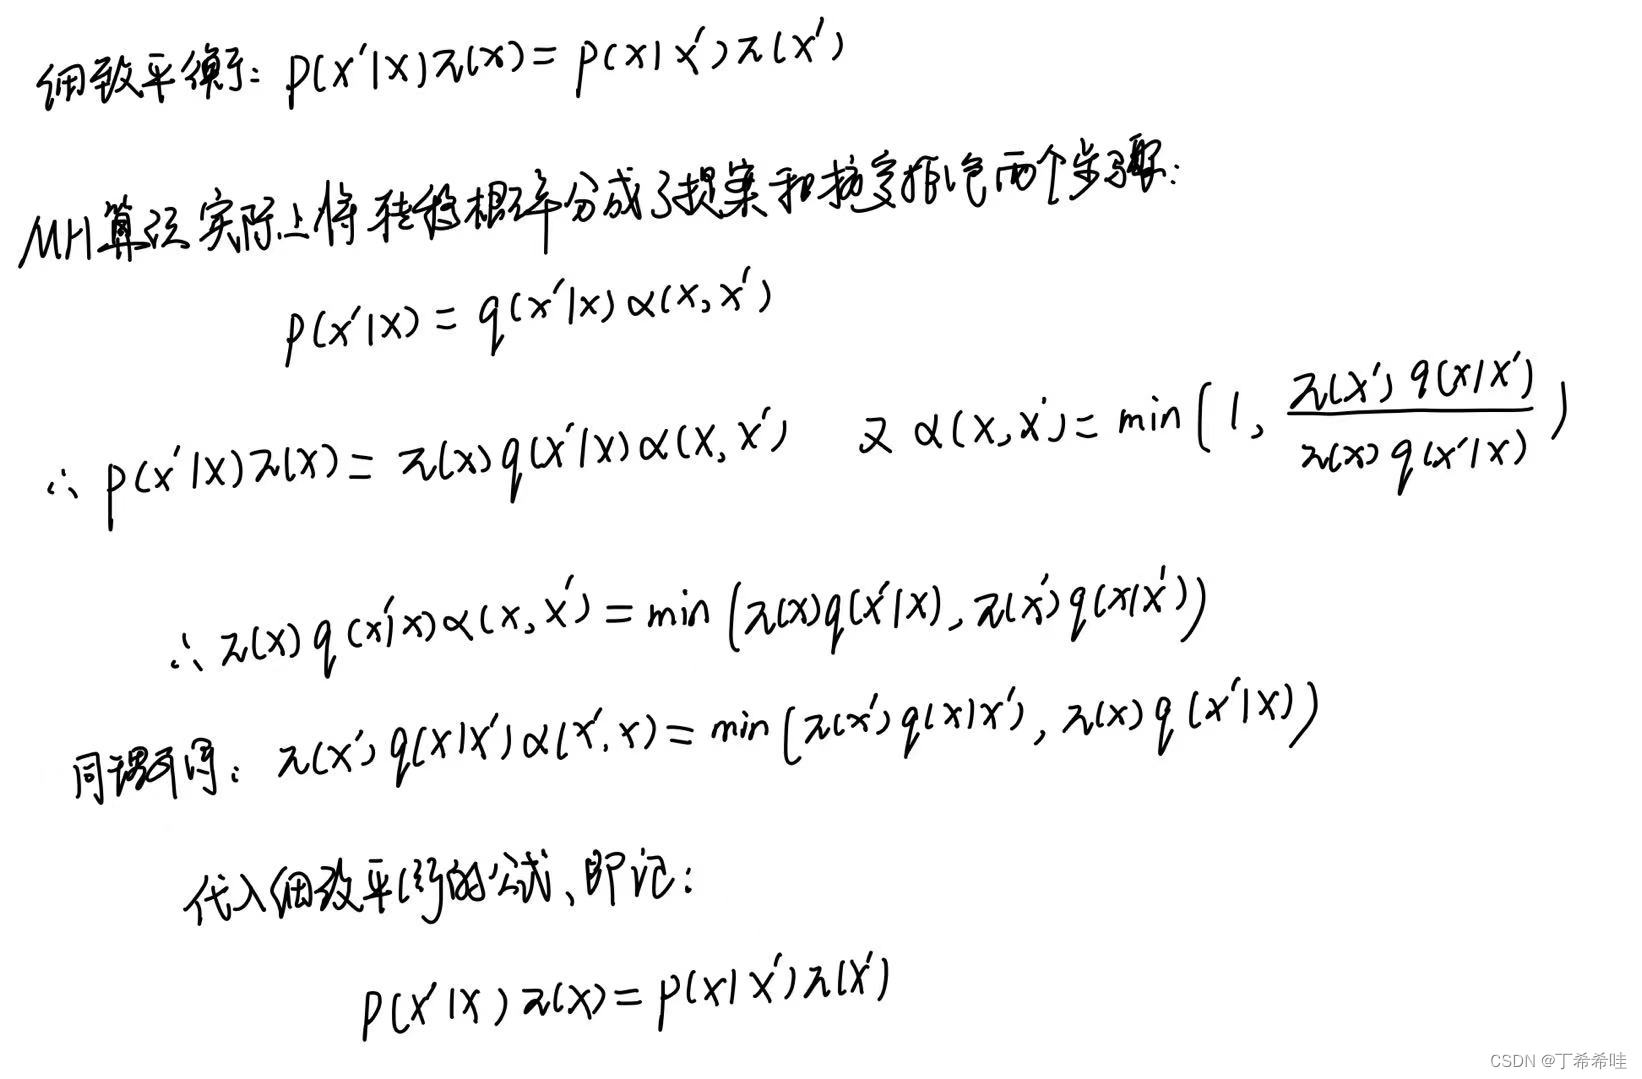 细致平衡: p(x'|x)π(x) = p(x|x')π(x')
MH算法实际上将转移概率分成了提案和接受拒绝两个步骤:
p(x'|x) = q(x'|x)α(x, x')
∴ p(x'|x)π(x) = π(x)q(x'|x)α(x, x') 又 α(x, x') = min(1, π(x')q(x|x') / π(x)q(x'|x))
∴ π(x)q(x'|x)α(x, x') = min(π(x)q(x'|x), π(x')q(x|x'))
同理可得: π(x')q(x|x')α(x', x) = min(π(x')q(x|x'), π(x)q(x'|x))
代入细致平衡的公式、即证:
P(x'|x)π(x) = p(x|x')π(x')
CSDN @丁希希哇